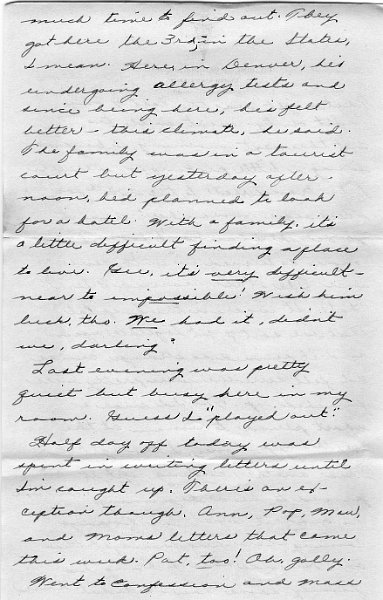 much time to find out. They
got here the 3rd, in the States,
I mean. Here, in Denver, he's
undergoing allergy tests and
since being here, he's felt
better - this climate, he said.
The family was in a tourist
court but yesterday after-
noon, he'd planned to look
for a hotel. With a family, it's
a little difficult finding a place
to live. Gee, it's very difficult -
near to impossible! Wish him
luck, tho. We had it, didn't
we, darling?
Last evening was pretty
quiet but busy here in my
room. Guess I "played out".
Half day off today was
spent in writing letters until
I'm caught up. There's an ex-
ception though. Ann, Pop, Maw,
and Mom's letters that came
this week. Pat, too! Oh, golly.
Went to confession and mass